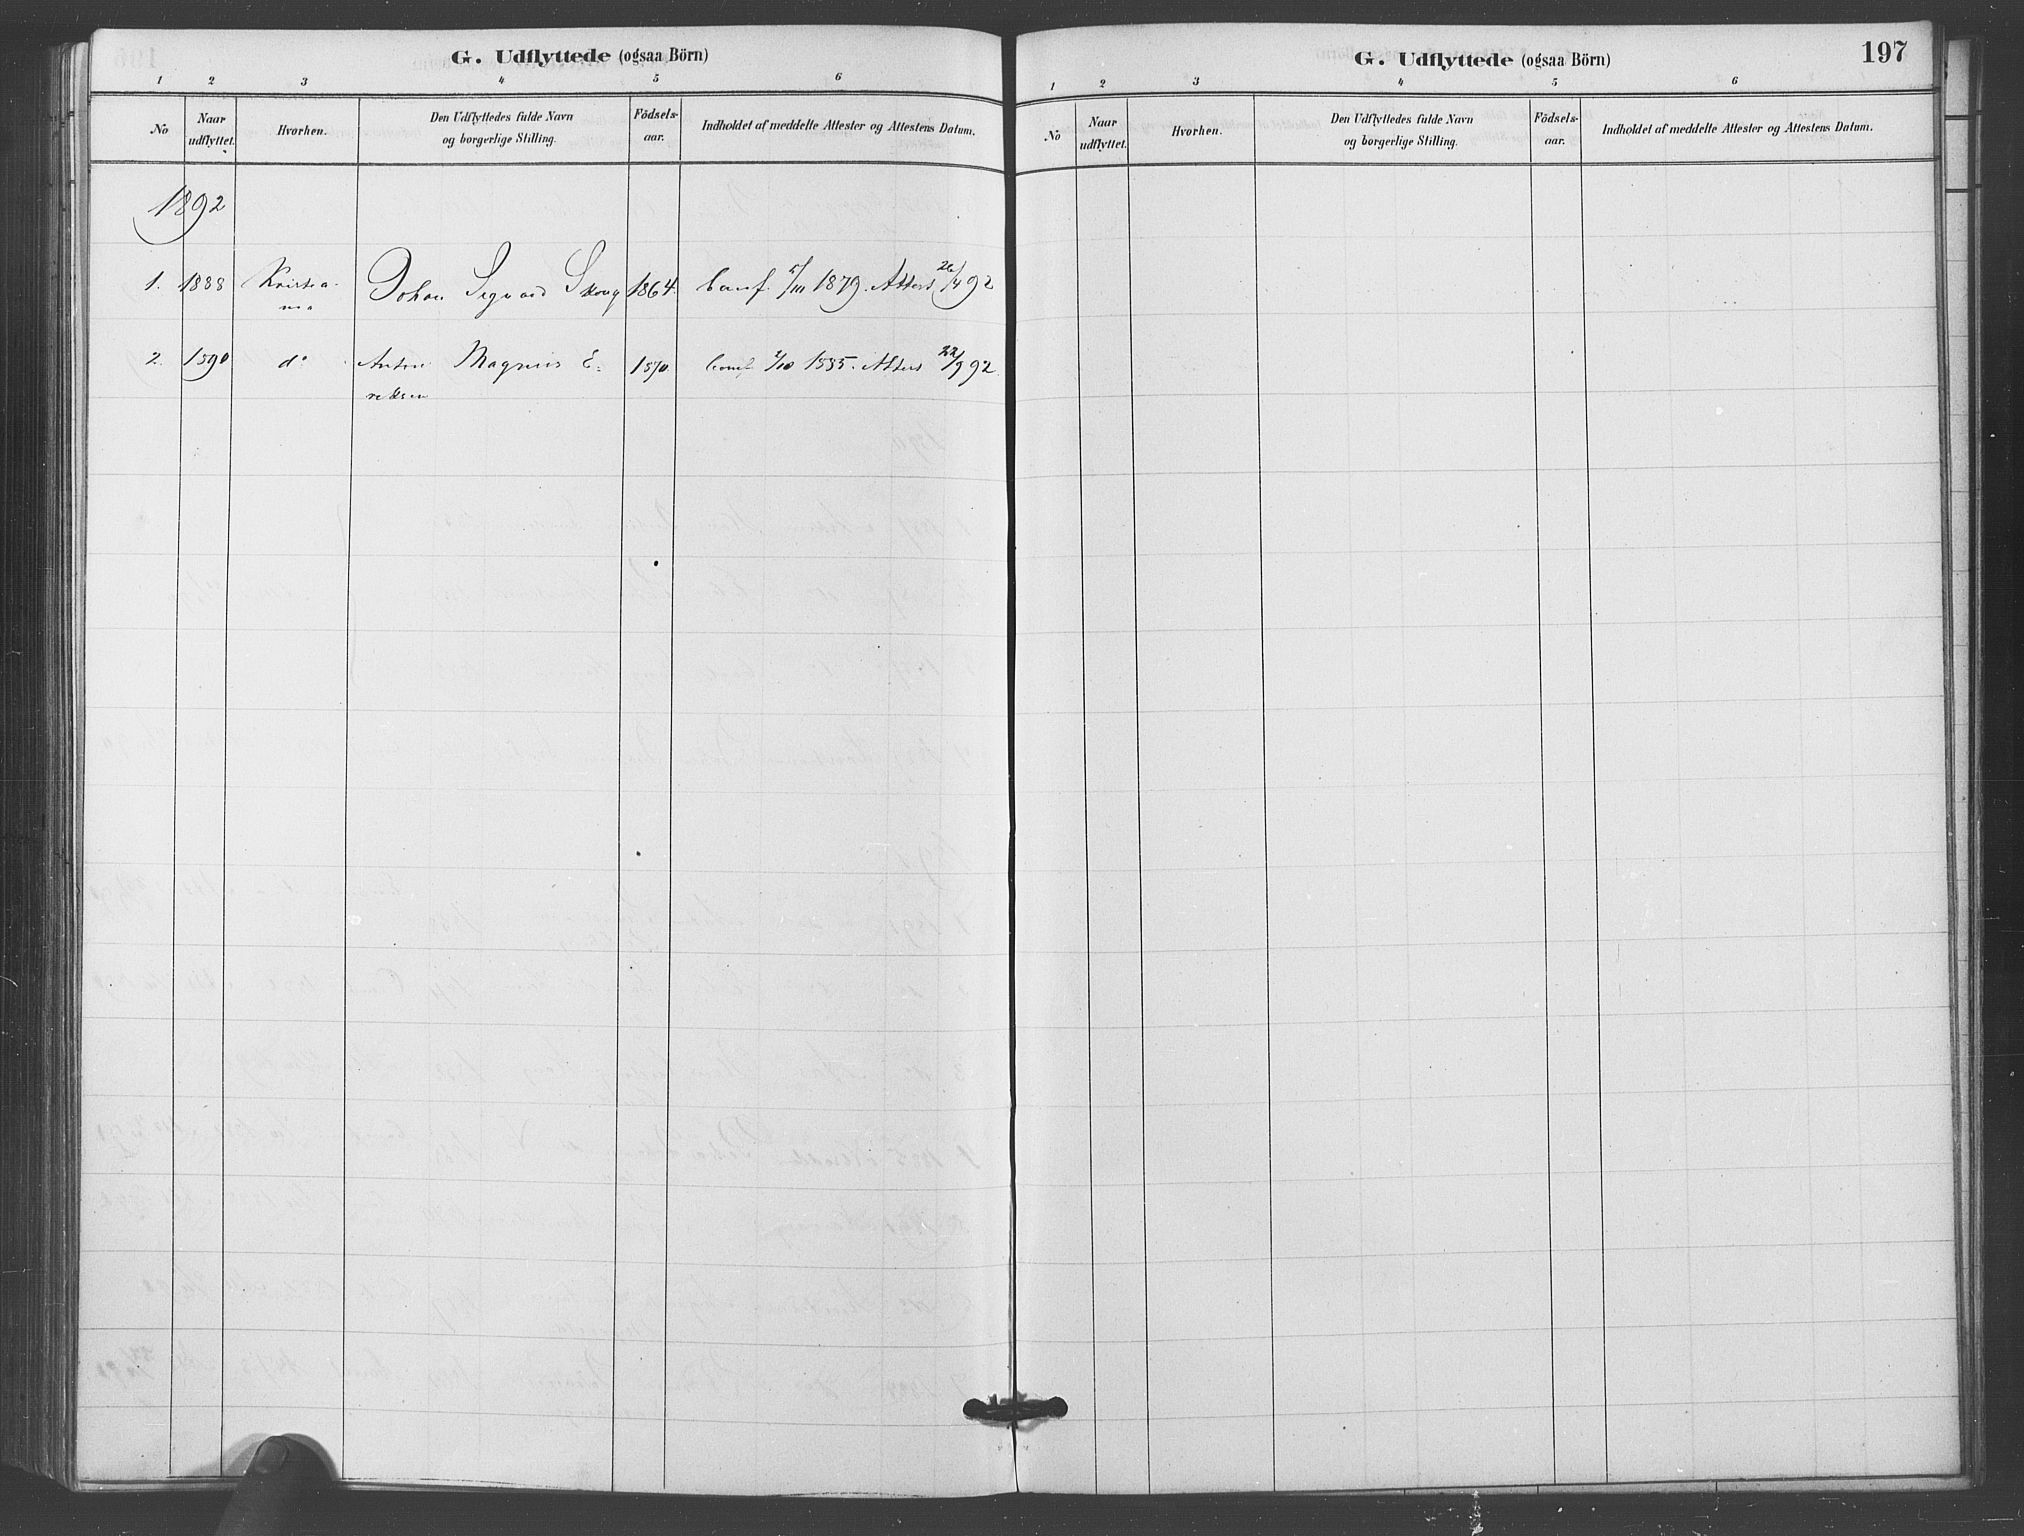 G. Udflyttede (ogsaa Börn)
1 2 3 4 5 6
No Naar udflyttet. Hvorhen. Den Udflyttedes fulde Navn og borgerlige Stilling. Födsels-aar. Indholdet af meddelte Attester og Attestens Datum.
1892
1. 1888 Kristia- Johan Sigvard Skoug 1864. Conf. 5/10 1879. Attest 26/4 92
nia
2. 1890 do Anton Magnus E- 1870. Conf. 1885. Attest 22/9 92.
riksen
G. Udflyttede (ogsaa Börn) 197
1 2 3 4 5 6
No Naar udflyttet. Hvorhen. Den Udflyttedes fulde Navn og borgerlige Stilling. Födsels-aar. Indholdet af meddelte Attester og Attestens Datum.